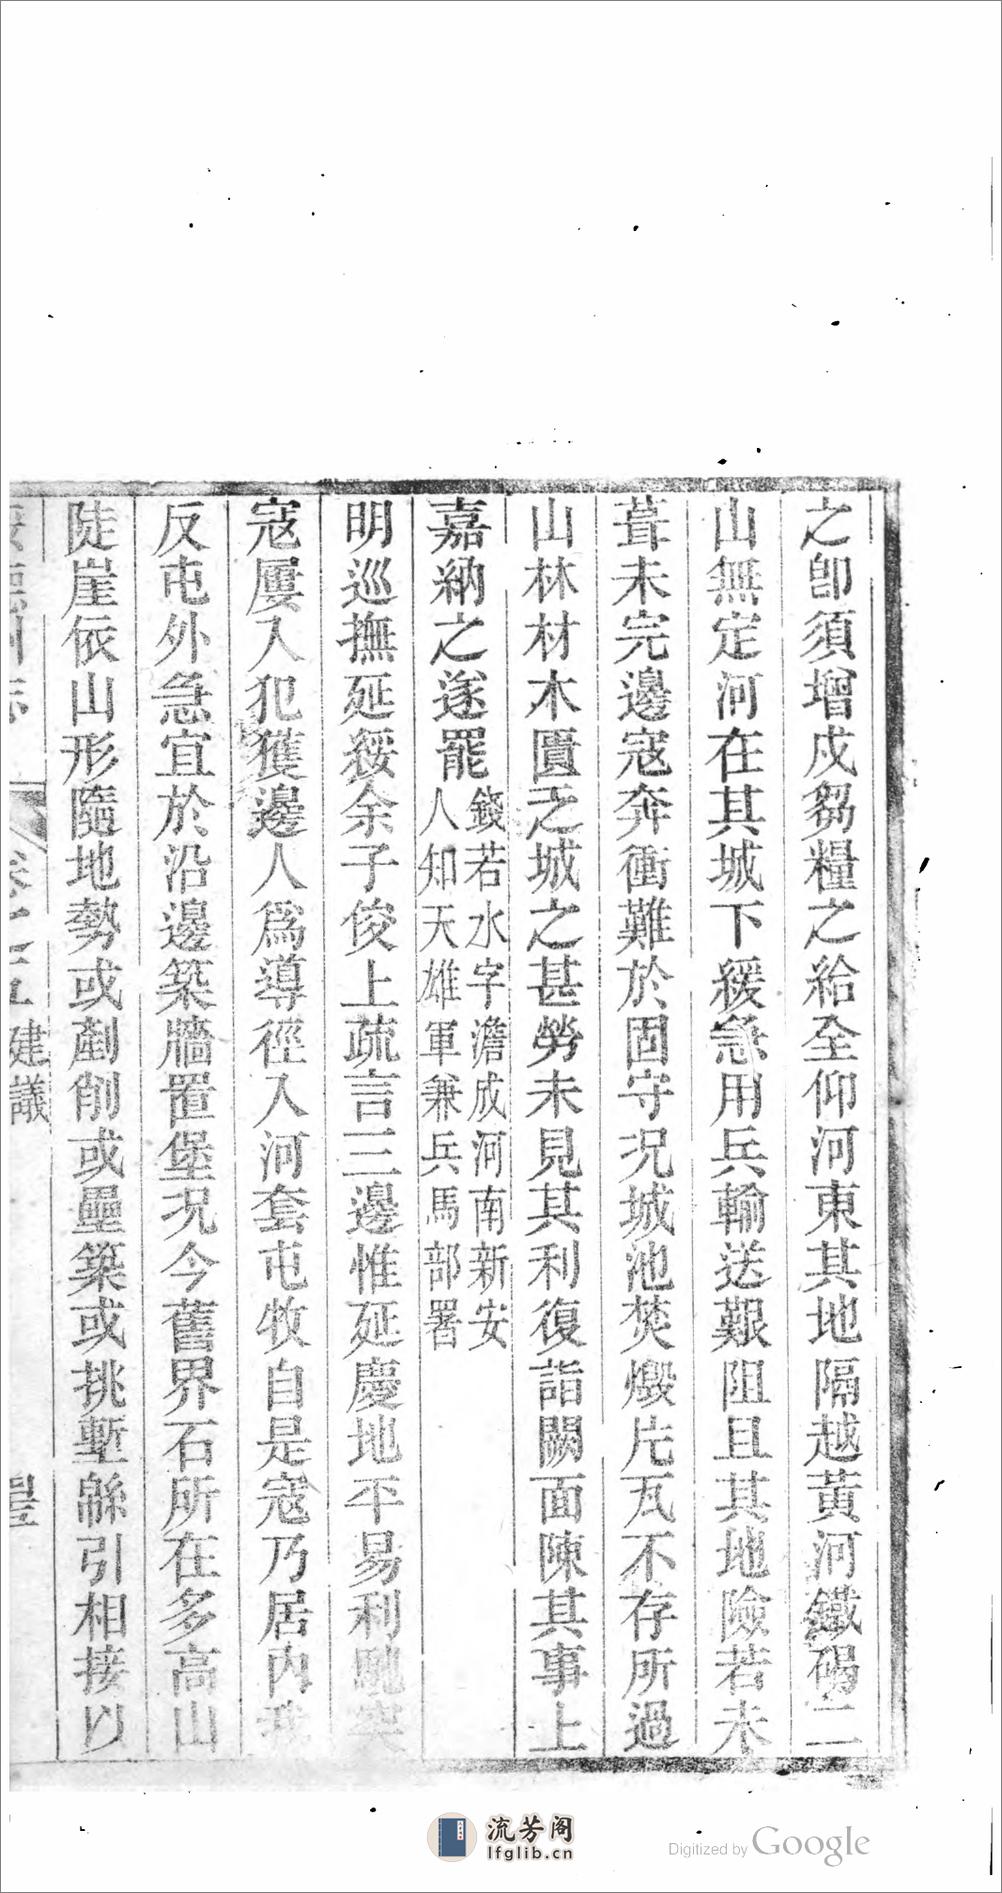 之卽須增戍芻糧之給全仰河東其地隔越黃河鐵碣二
山無定河在其城下緩急用兵輸送艱阻且其地險若未
葺未完邊寇奔衝難於固守况城池焚燬片瓦不存所過
山林材木匱乏城之甚勞未見其利復詣闕面陳其事上
嘉納之遂罷錢若水字澹成河南新安
人知天雄軍兼兵馬部署
明巡撫延綏余子俊上疏言三邊惟延慶地平易利馳突
寇屢入犯獲邊人爲導徑入河套屯牧自是寇乃居內我
反屯外急宜於沿邊築牆置堡况今舊界石所在多高山
陡崖依山形隨地勢或剷削或壘築或挑塹緜引相接以
州志
卷之五
建議
流芳阁
lfglib.cn
Digitized by Google